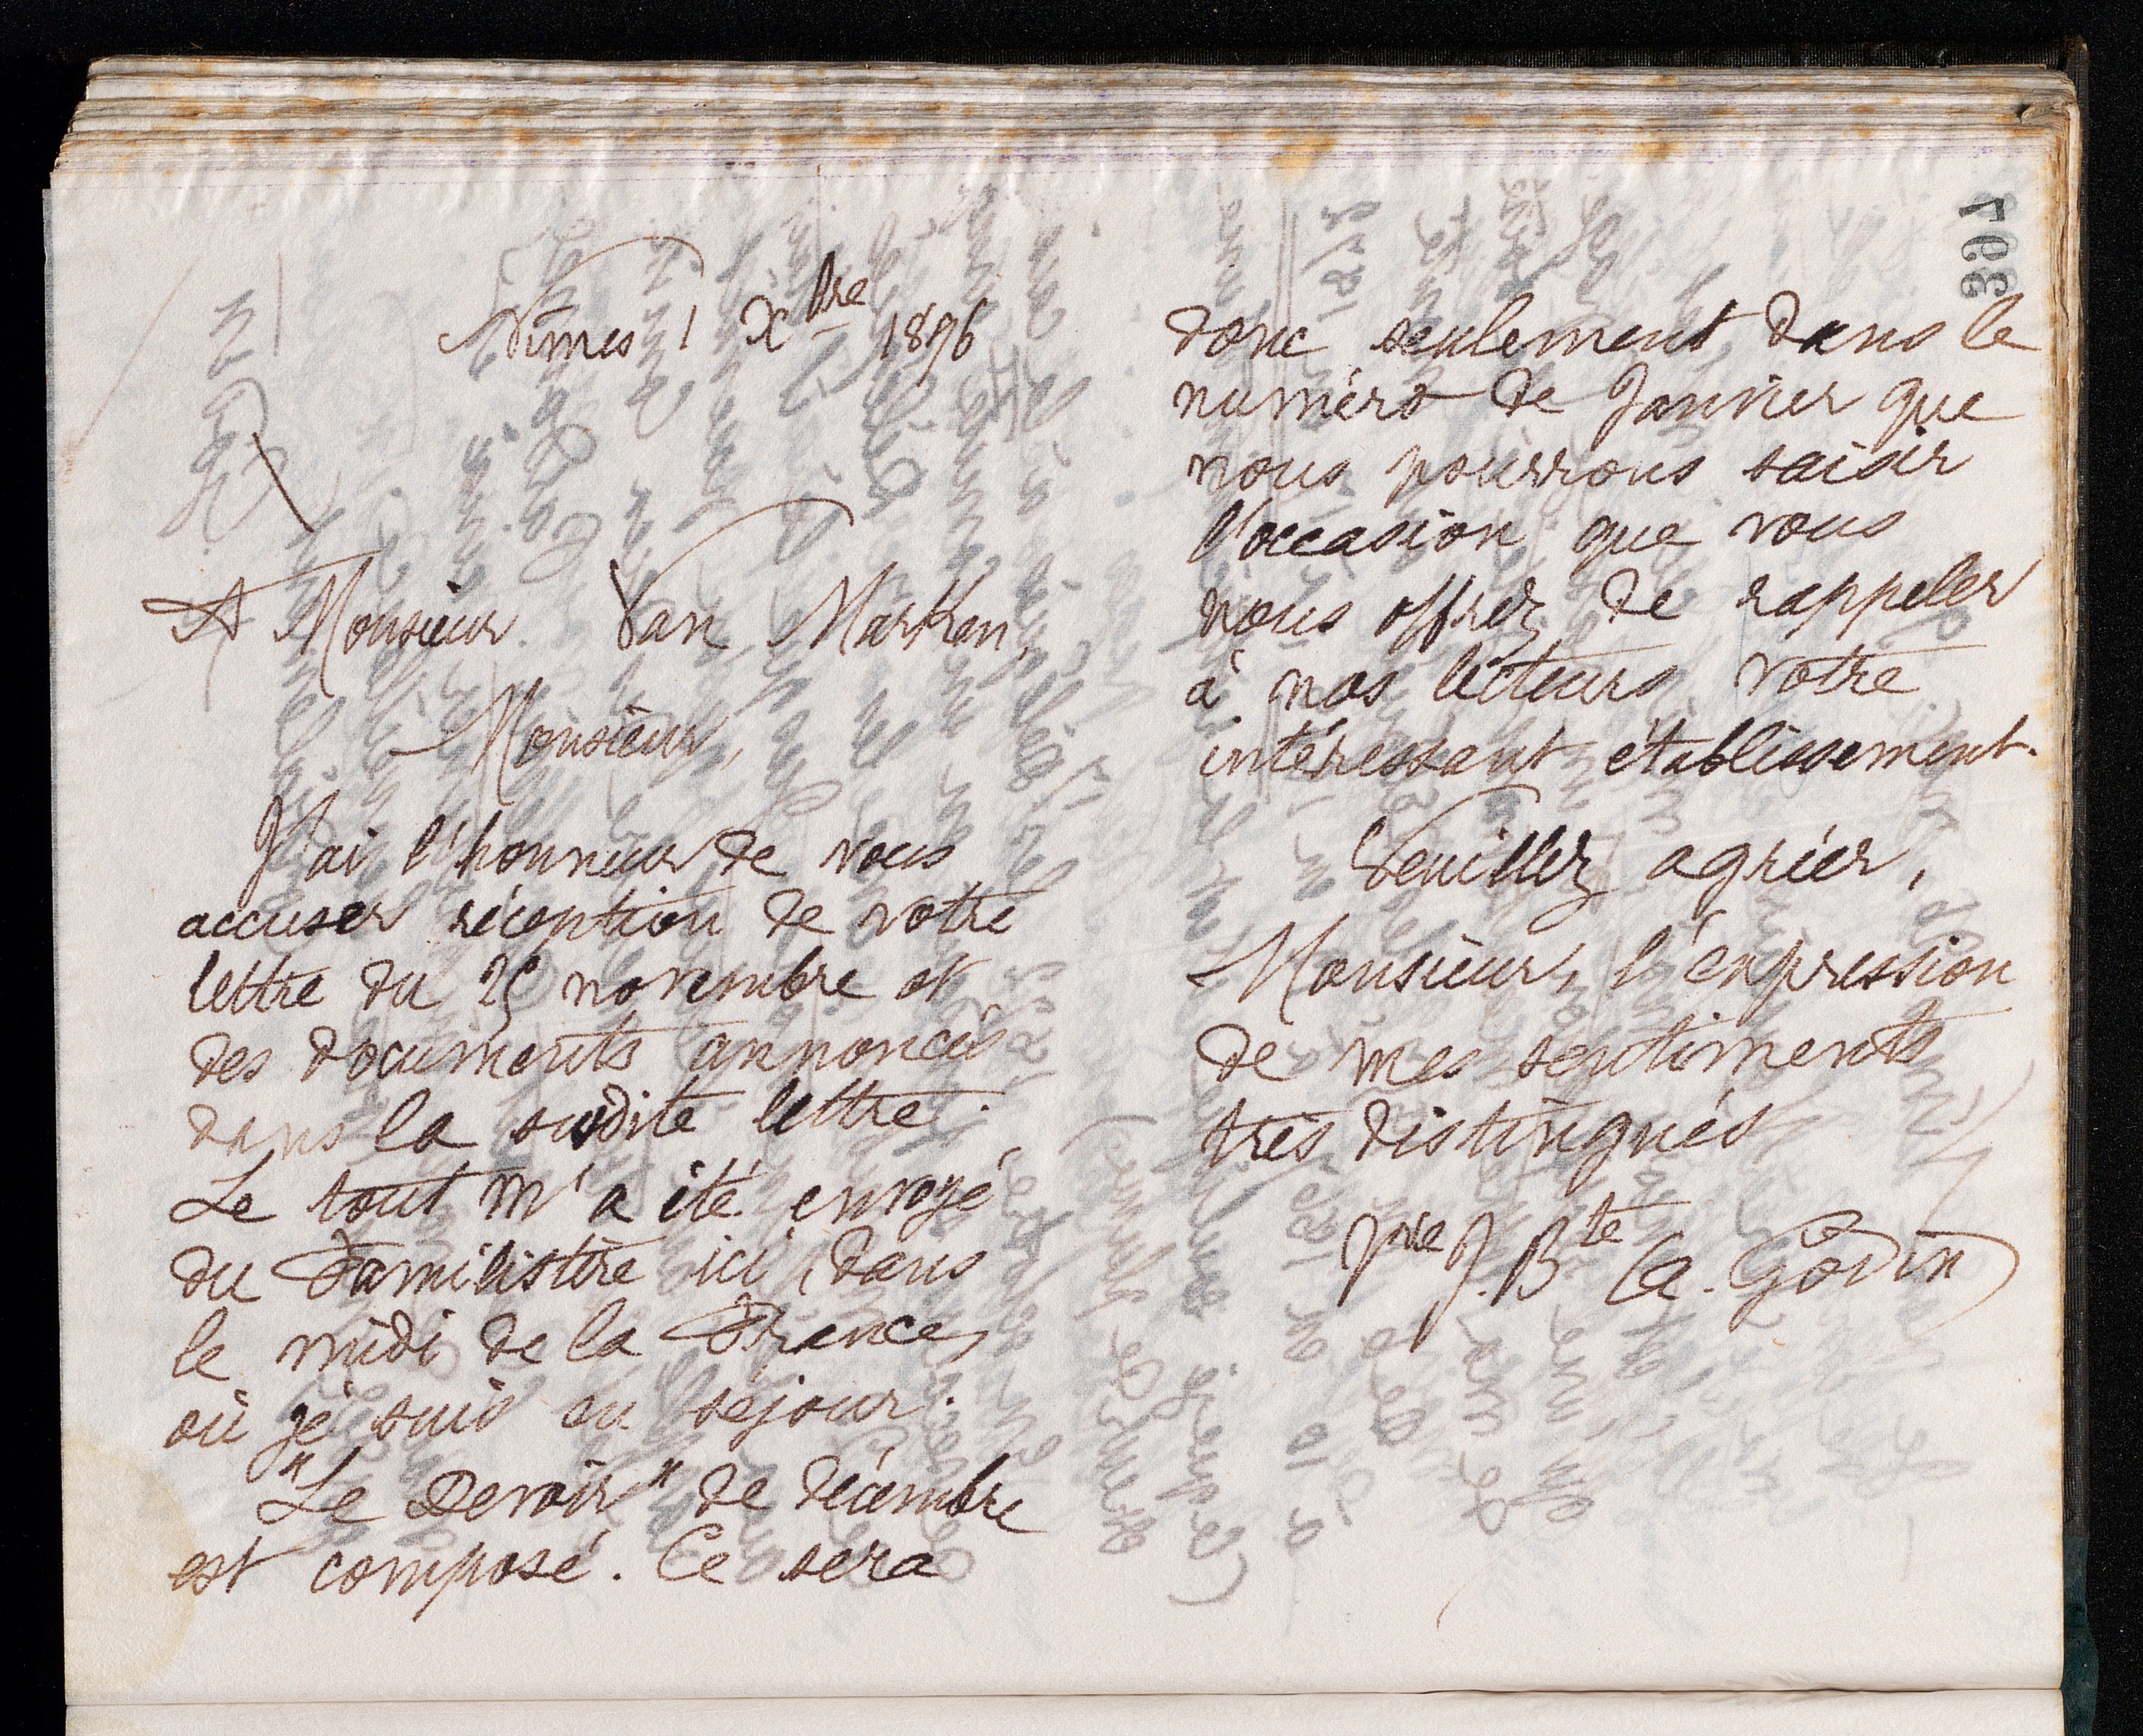 307
Nîmes 1 Xbre 1896
A Monsieur Van Marken,
Monsieur,
J'ai l'honneur de vous
accuser réception de votre
lettre du 25 novembre et
des documents annoncés
dans la susdite lettre.
Le tout m'a été envoyé
du Familistère ici, dans
le midi de la France,
où je suis en séjour.
"Le Devoir" de décembre
est composé. Ce sera
donc seulement dans le
numéro de Janvier que
nous pourrons saisir
l'occasion que vous
nous offrez de rappeler
à nos lecteurs votre
intéressant établissement.
Veuillez agréer,
Monsieur, l'expression
de mes sentiments
très distingués
J. Bte A. Godin